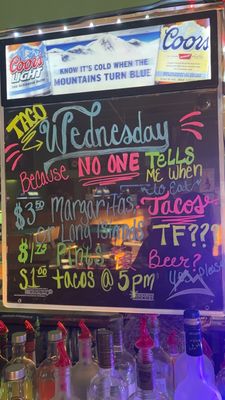 Coors
LIGHT
KNOW IT'S COLD WHEN THE
MOUNTAINS TURN BLUE
Coors
TACO
Wednesday
Because NO ONE TELLS
ME WHEN
to eat
$3.50 Margaritas Tacos
or Long Islands TF???
$1.25 Pints Beer?
$1.00 tacos @ 5pm Yes, please